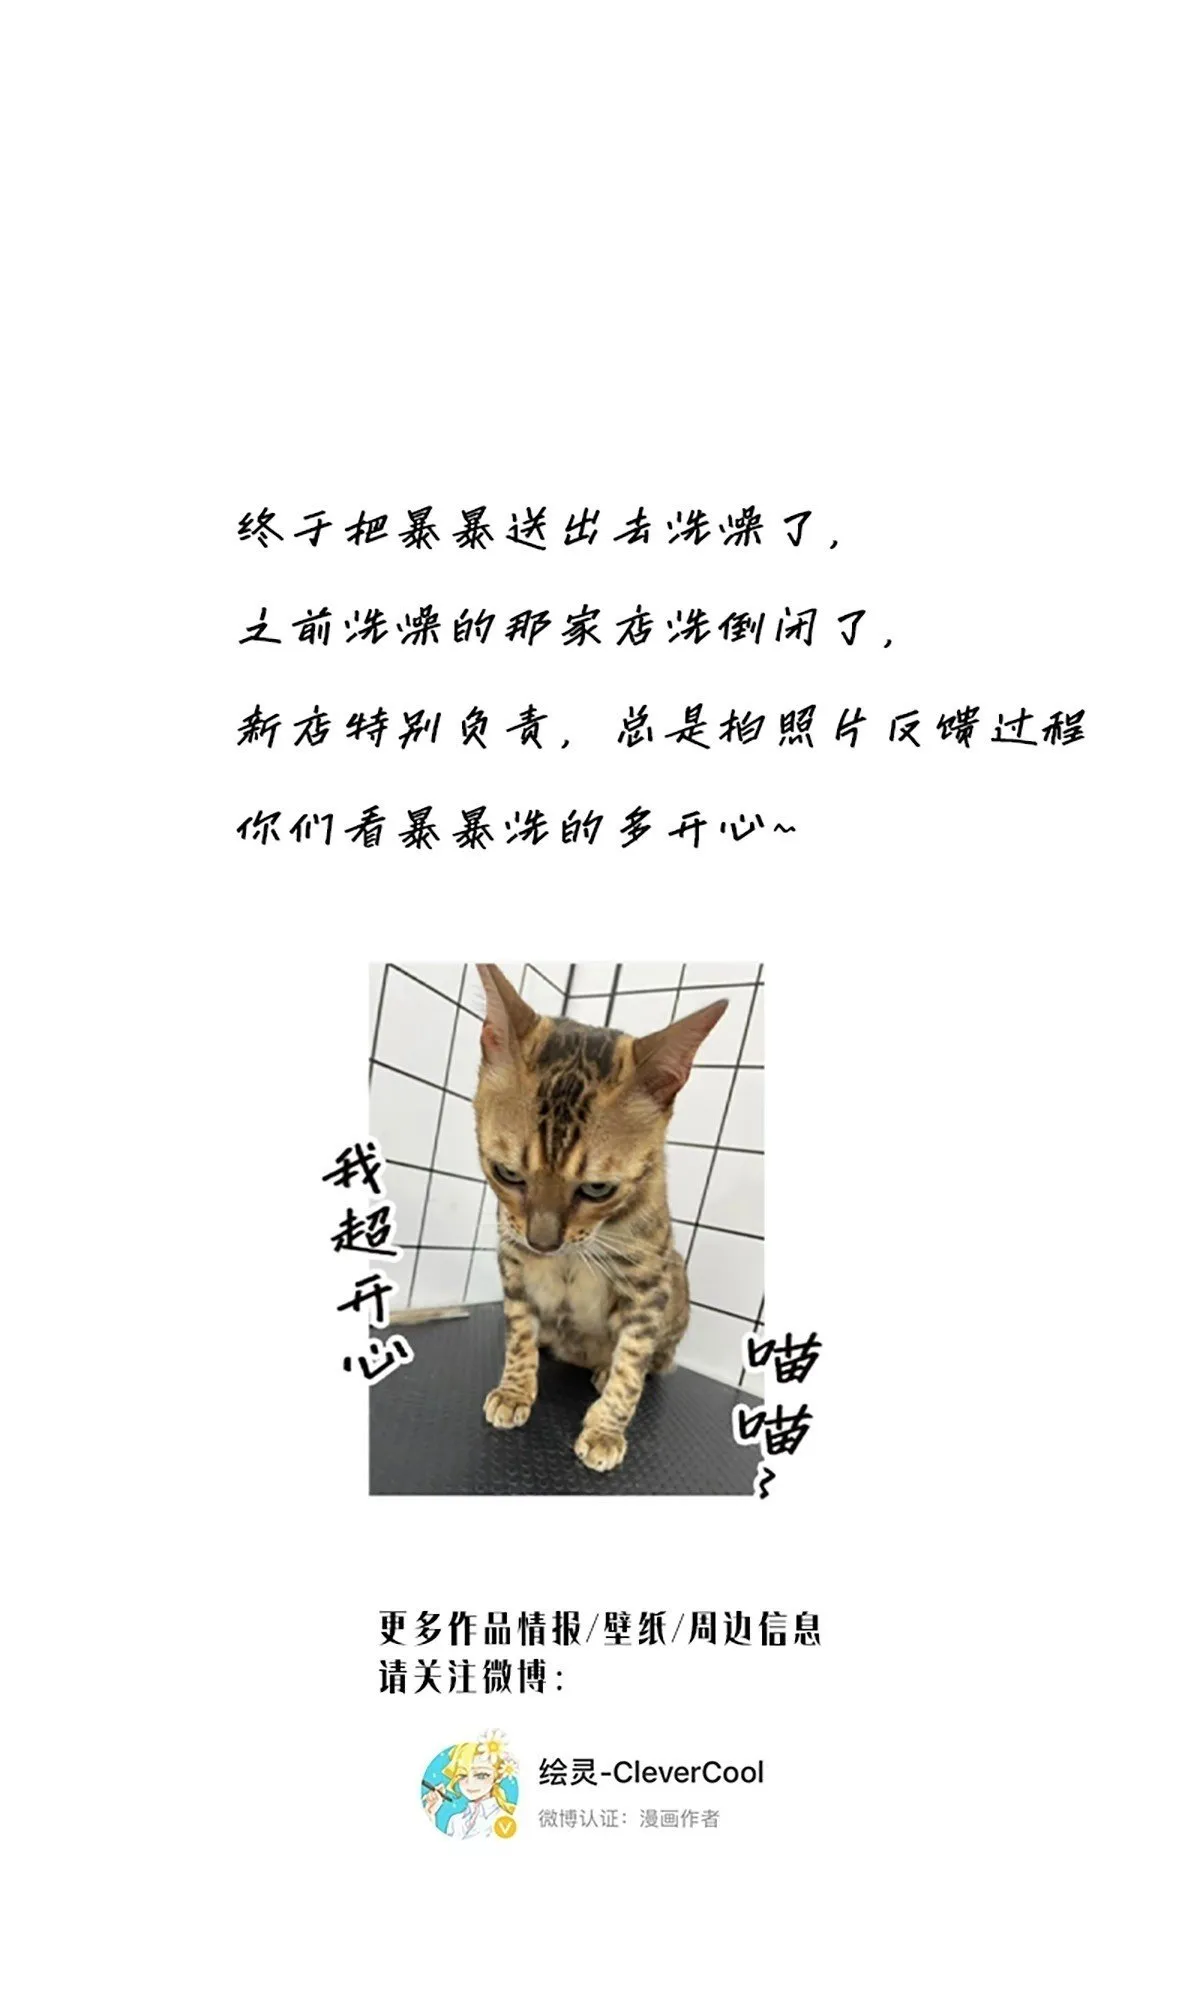 终于把暴暴送出去洗澡了,
之前洗澡的那家店洗倒闭了,
新店特别负责, 总是拍照片反馈过程
你们看暴暴洗的多开心~
我超开心
喵喵~
更多作品情报/壁纸/周边信息
请关注微博:
绘灵-CleverCool
微博认证: 漫画作者